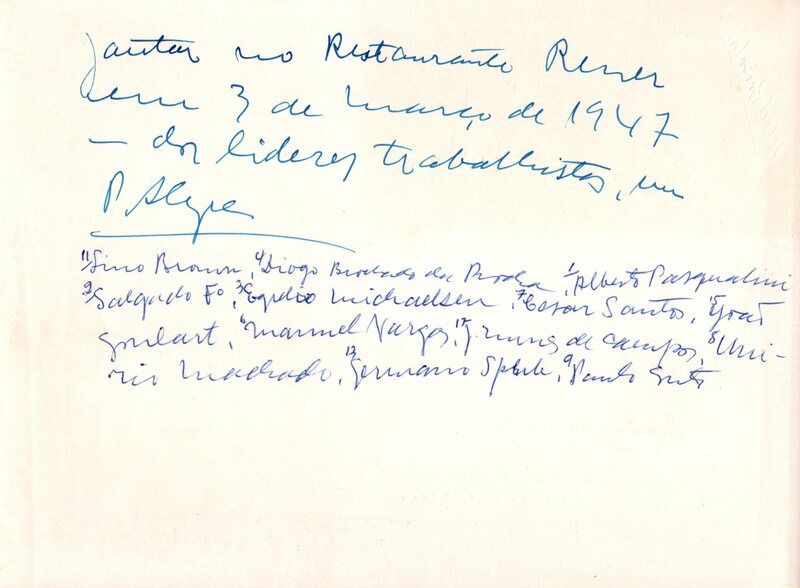 jantar no Restaurante Renner
em 3 de março de 1947
— dos lideres trabalhistas, em
P. Alegre
11 Sino Brown, 4 Diogo Brochado da Rocha, 1 Alberto Pasqualini
2 Salgado Fo, 3 Egydio Michaelsen, 7 Cesar Santos, 5 João
Goulart, 6 Manuel Vargas, J. Nunes de Campos, 8 Uni-
rio Machado, 12 Germano Sperb, 9 Paulo